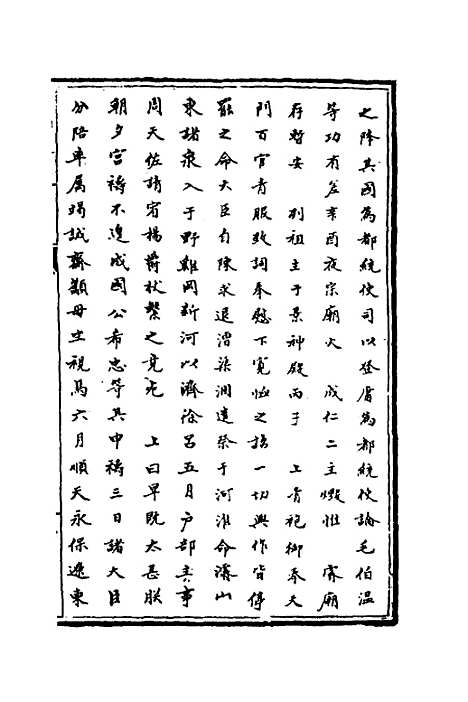 之降其國為都統使司以登庸為都統使論毛伯溫
等功有差辛酉夜宗廟火　成仁二主燬惟　睿廟
存暫安　列祖主于景神殿丙子　上青袍御奉天
門百官青服致詞奉慰下寬恤之詔一切興作皆停
罷之命大臣自陳求退漕渠涸遣祭于河淮命濬山
東諸泉入于野雞岡新河以濟徐呂五月戶部主事
周天佐請宥楊爵杖繫之竟死　上曰旱既太甚朕
朝夕宮禱不逮成國公希忠等其申禱三日諸大臣
分陪率属竭誠齋顙毋空視焉六月順天永保遼東